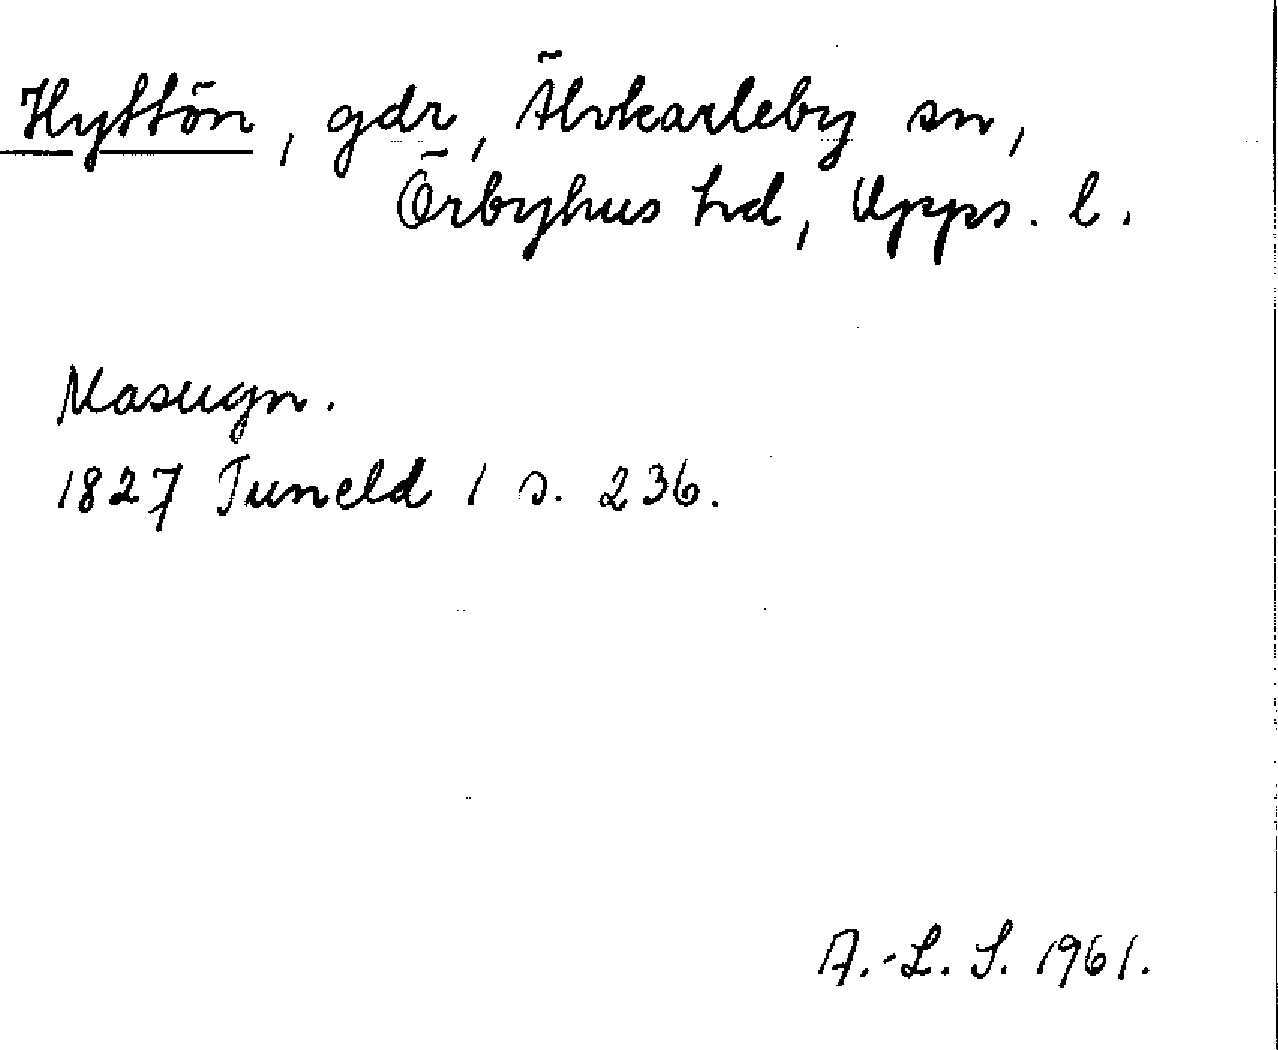 Hyttön, gdr, Älvkarleby sn,
Örbyhus hd, Upps. l.
Masugn.
1827 Tuneld 1 s. 236.
A.-L. S. 1961.